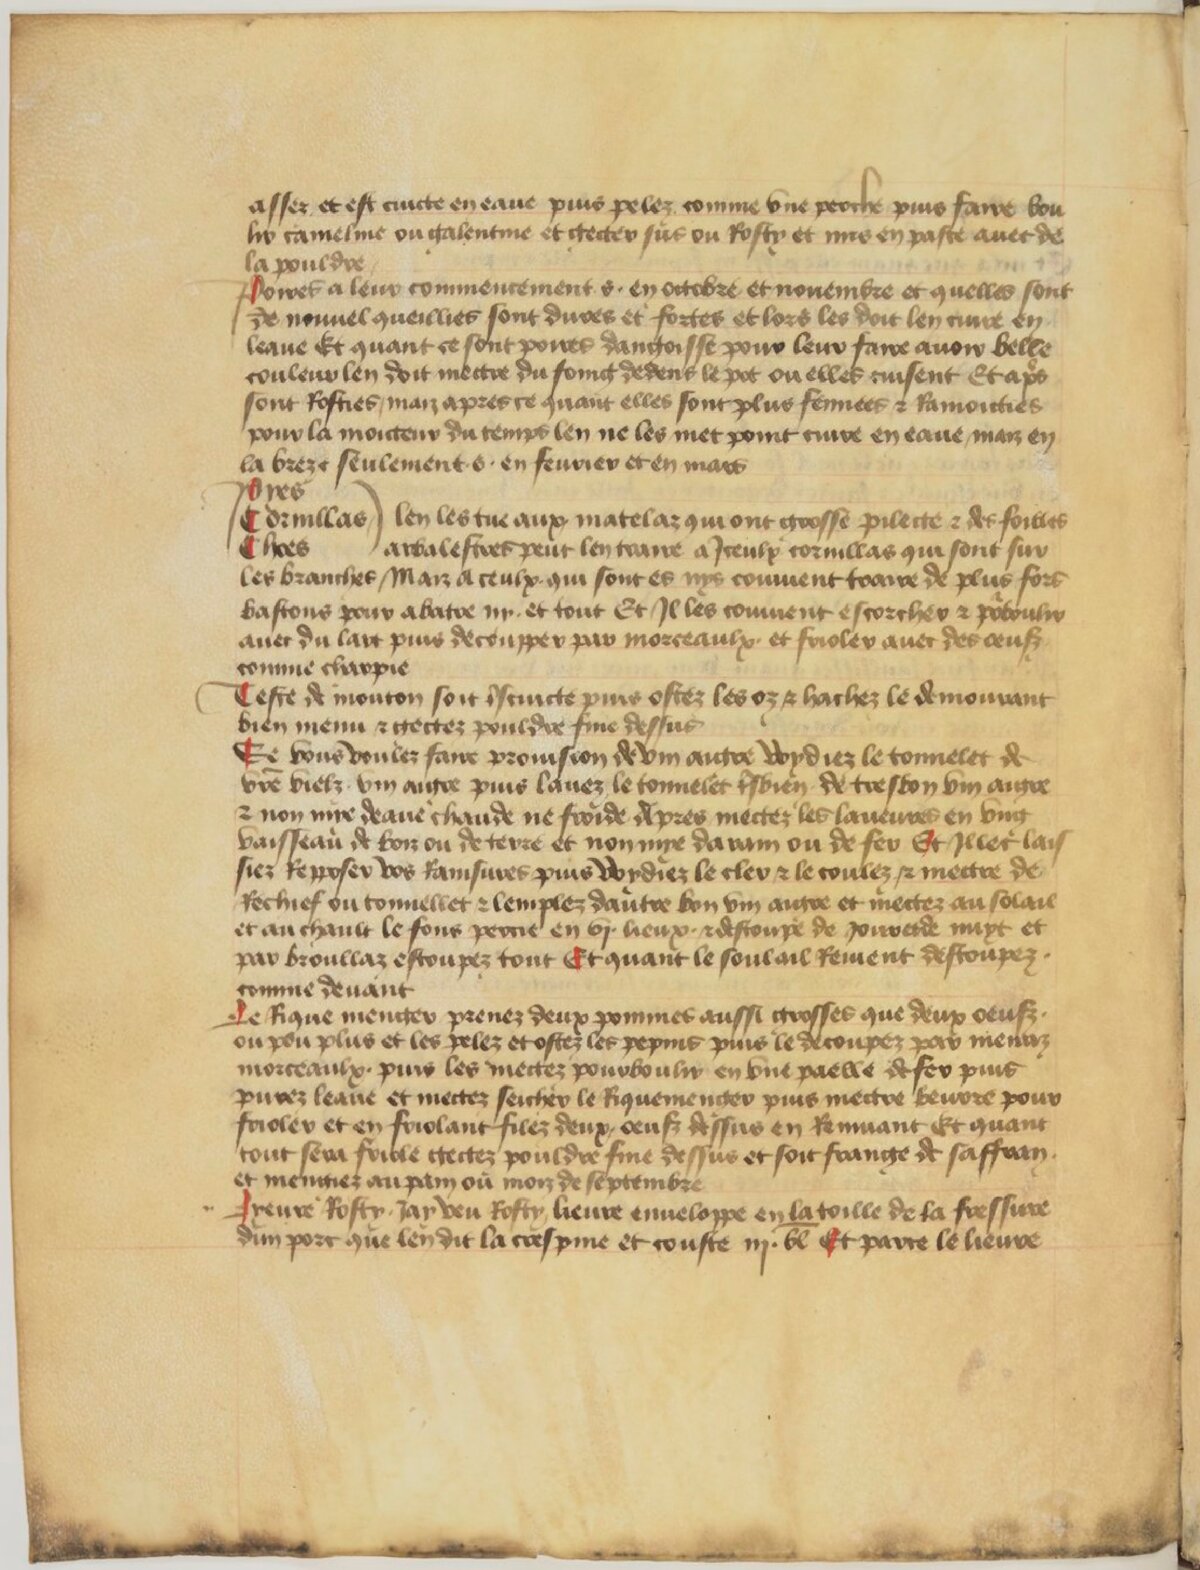 assez et est cuicte en eaue puis pelez comme vne perche puis faire bou
lir cameline ou galentine et gecter sus ou Rosty et mis en paste auec de
la pouldre
Poires a leur commencement .s. en octobre et nouembre et quelles sont
de nouuel queillies sont dures et fortes et lors les doit len cuire en
leaue Et quant ce sont poires dangoisse pour leur faire auoir belle
couleur len doit mectre du foing dedens le pot ou elles cuisent Et aps
sont Rosties maiz apres ce quant elles sont plus fennees & Ramoities
pour la moicteur du temps len ne les met point cuire en eaue maiz en
la breze seulement .s. en feurier et en mars
Pyes
Cornillas len les tue aux matelaz qui ont grosse pilecte & des foibles
Choes arbalestres peut len traire a Iceulx cornillas qui sont sur
les branches Maiz a ceulx qui sont es nys conuient traire de plus fors
bastons pour abatre ny et tout Et Il les conuient escorcher & pboulir
auec du lart puis decoupper par morceaulx et frioler auec des oeufz
comme charpie
Teste de mouton soit tscuicte puis ostez les oz & hachez le demourant
bien menu & gectez pouldre fine dessus
Se vous voulez faire prouision de vin aigre wydiez le tonnelet de
vre vielz vin aigre puis lauez le tonnelet tsbien de tresbon vin aigre
& non mye deaue chaude ne froide Apres mectez les laueures en vng
vaisseau de boiz ou de terre et non mye darain ou de fer Et Illec lais
siez Repposer vos Rainsures puis wydiez le cler & le coulez & mectre de
Rechief ou tonnellet & lemplez dautre bon vin aigre et mectez au solail
et au chault le fons percie en vj. lieux & destoupe de jour et de nuyt et
par broullaz estoupez tout Et quant le soulail Reuient destoupez
comme deuant
Le Rique menger prenez deux pommes aussi grosses que deux oeufz
ou pou plus et les pelez et ostez les pepins puis le decoupez par menuz
morceaulx puis les mectez pourboulir en vne paelle de fer puis
purez leaue et mectez seicher le Riquemenger puis mectre beurre pour
frioler et en friolant filez deux oeufz dessus en Remuant Et quant
tout sera friole gectez pouldre fine dessus et soit frange de saffran
et mengiez au pain ou moiz de septembre
Lieure Rosty Jay veu Rosty lieure enueloppe en la toille de la fressure
dun porc que len dit la crespine et couste iij. bl Et parce le lieure